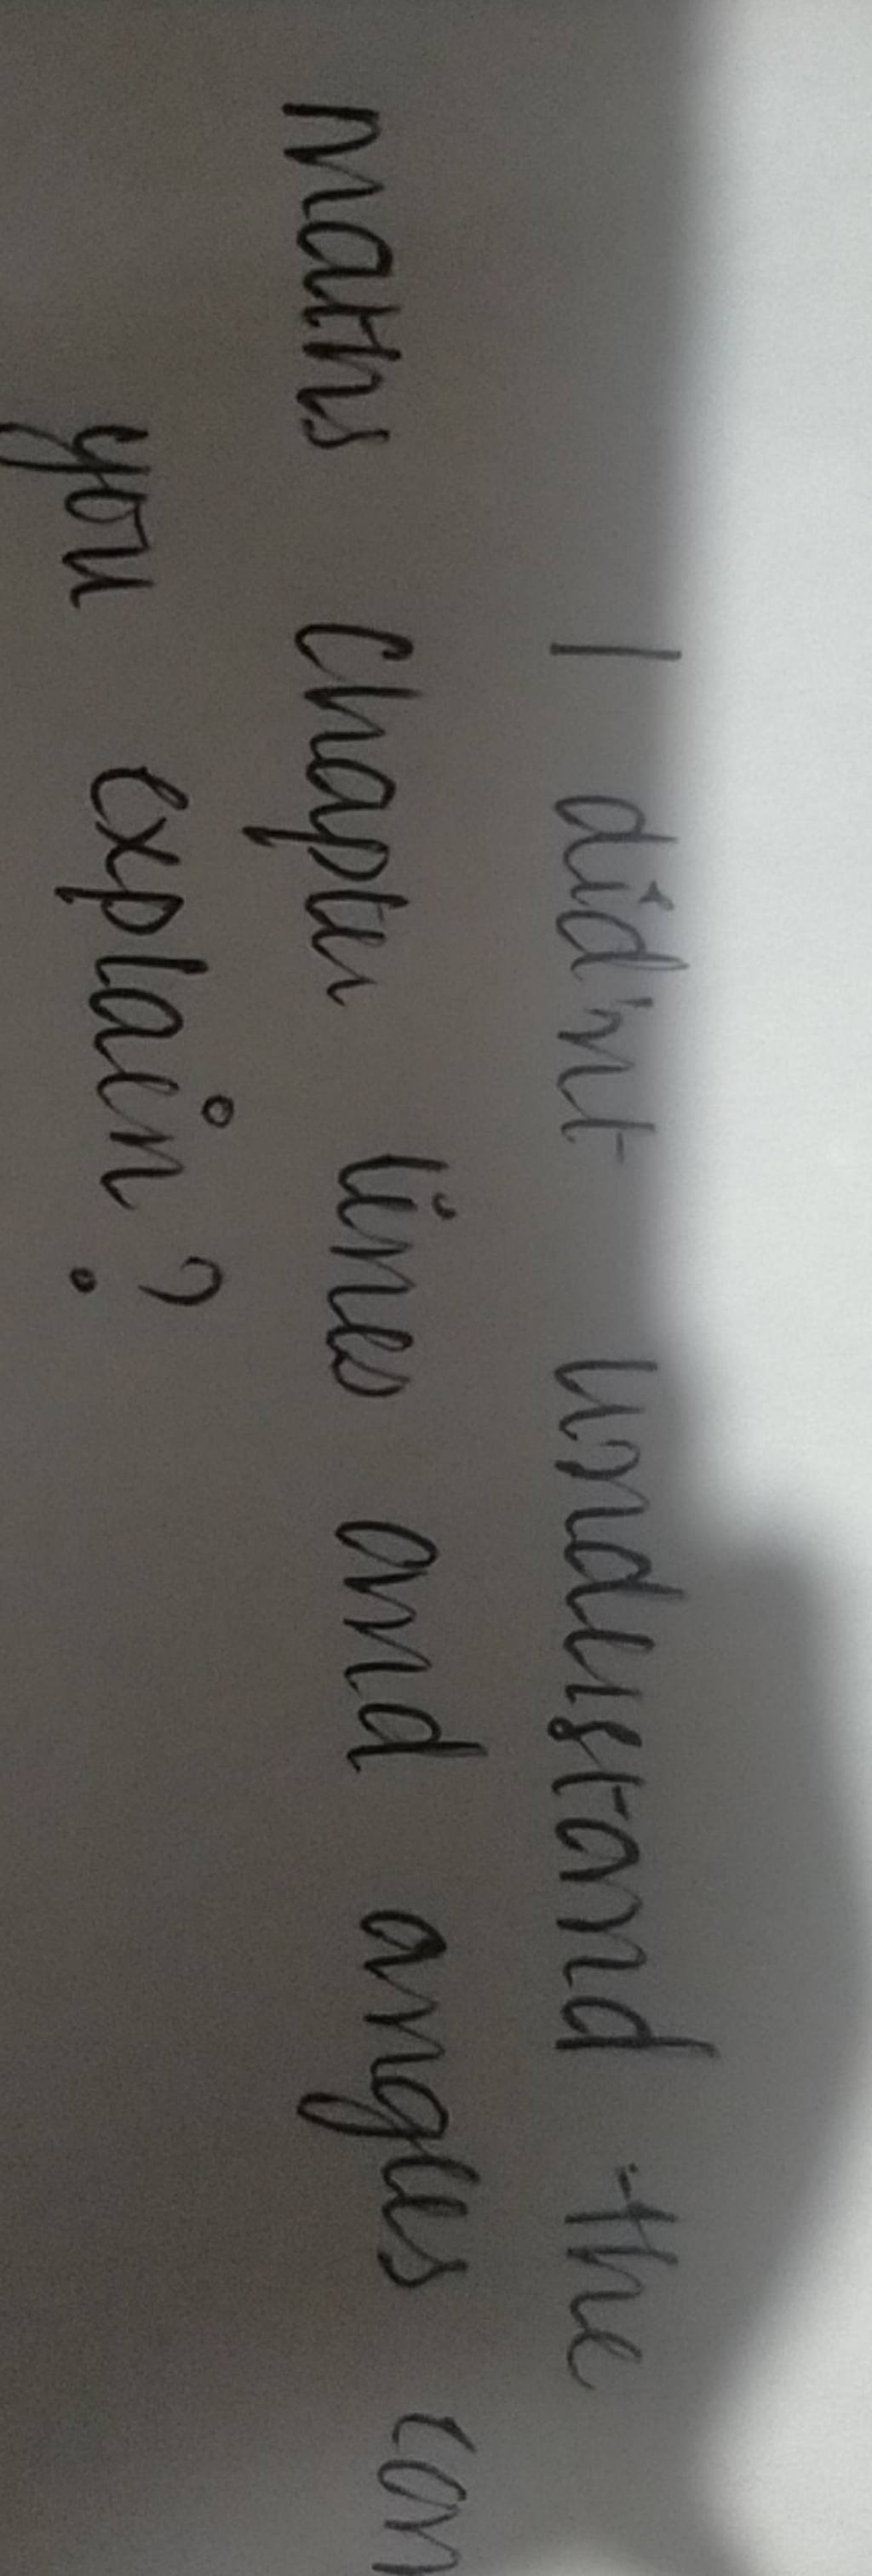 I did'nt understand the
maths Chapter lines and angles can
you explain?